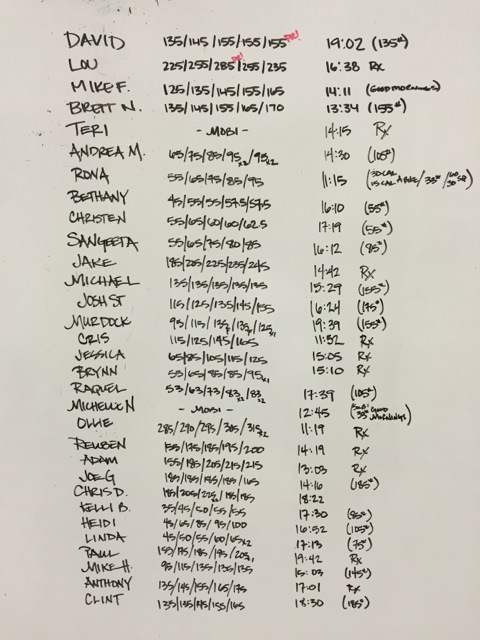 DAVID 135/145/155/155/155 PR! 19:02 (135#)
LOU 225/255/285/255/235 PR! 16:38 Rx
MIKE F. 125/135/145/155/165 14:11 (GOOD MORNINGS)
BRETT N. 135/145/155/165/170 13:34 (155#)
TERI - MOBI - 14:15 Rx
ANDREA M. 65/75/85/95x2/95x2 14:30 (105#)
RONA 55/65/75/85/95 11:15
BETHANY 45/55/55/57.5/57.5 16:10 (55#)
CHRISTEN 55/65/60/60/62.5 17:19 (55#)
SANGEETA 55/65/75/80/85 16:12 (85#)
JAKE 185/205/225/235/245 14:42 Rx
MICHAEL 135/135/135/135/135 15:29 (155#)
JOSH ST 115/125/135/145/155 16:24 (175#)
MURDOCK 95/115/135/135/125 19:39 (155#)
CRIS 115/125/145/165 11:52 Rx
JESSICA 65/85/105/115/125 15:05 Rx
BRYNN 55/65/85/85/95x1 15:10 Rx
RAQUEL 53/63/73/83x2/83x2 17:39 (105#)
MICHELLE N - MOBI - 12:45 35# GOOD MORNINGS)
OLLIE 285/290/295/305/315x2 11:19 Rx
REUBEN 155/175/185/195/200 14:19 Rx
ADAM 155/185/205/215/215 13:03 Rx
JOE G 185/185/185/185/165 14:16 (185#)
CHRIS D. 185/205/225/185/185 18:22
KELLI B. 35/45/50/55/55 17:30 (85#)
HEIDI 45/65/85/95/100 16:52 (105#)
LINDA 45/50/55/60/65x2 17:13 (75#)
PAUL 155/175/185/195/205x1 19:42 Rx
MIKE H. 95/115/135/135/135 15:03 (145#)
ANTHONY 135/145/155/165/175 17:01 Rx
CLINT 135/135/145/155/165 18:30 (185#)